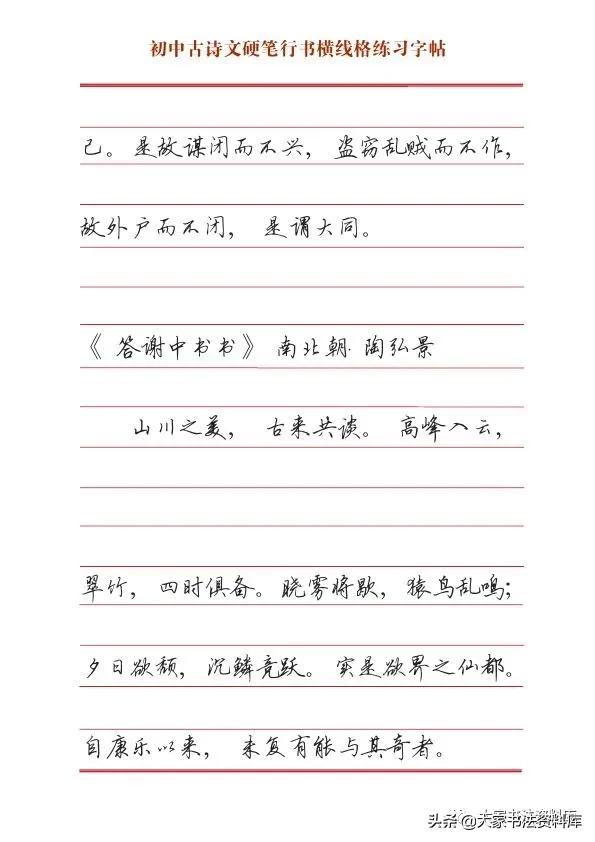 初中古诗文硬笔行书横线格练习字帖
己。是故谋闭而不兴，盗窃乱贼而不作，
故外户而不闭，是谓大同。
《答谢中书书》南北朝·陶弘景
山川之美，古来共谈。高峰入云，
翠竹，四时俱备。晓雾将歇，猿鸟乱鸣；
夕日欲颓，沉鳞竞跃。实是欲界之仙都。
自康乐以来，未复有能与其奇者。
头条@大家书法资料库